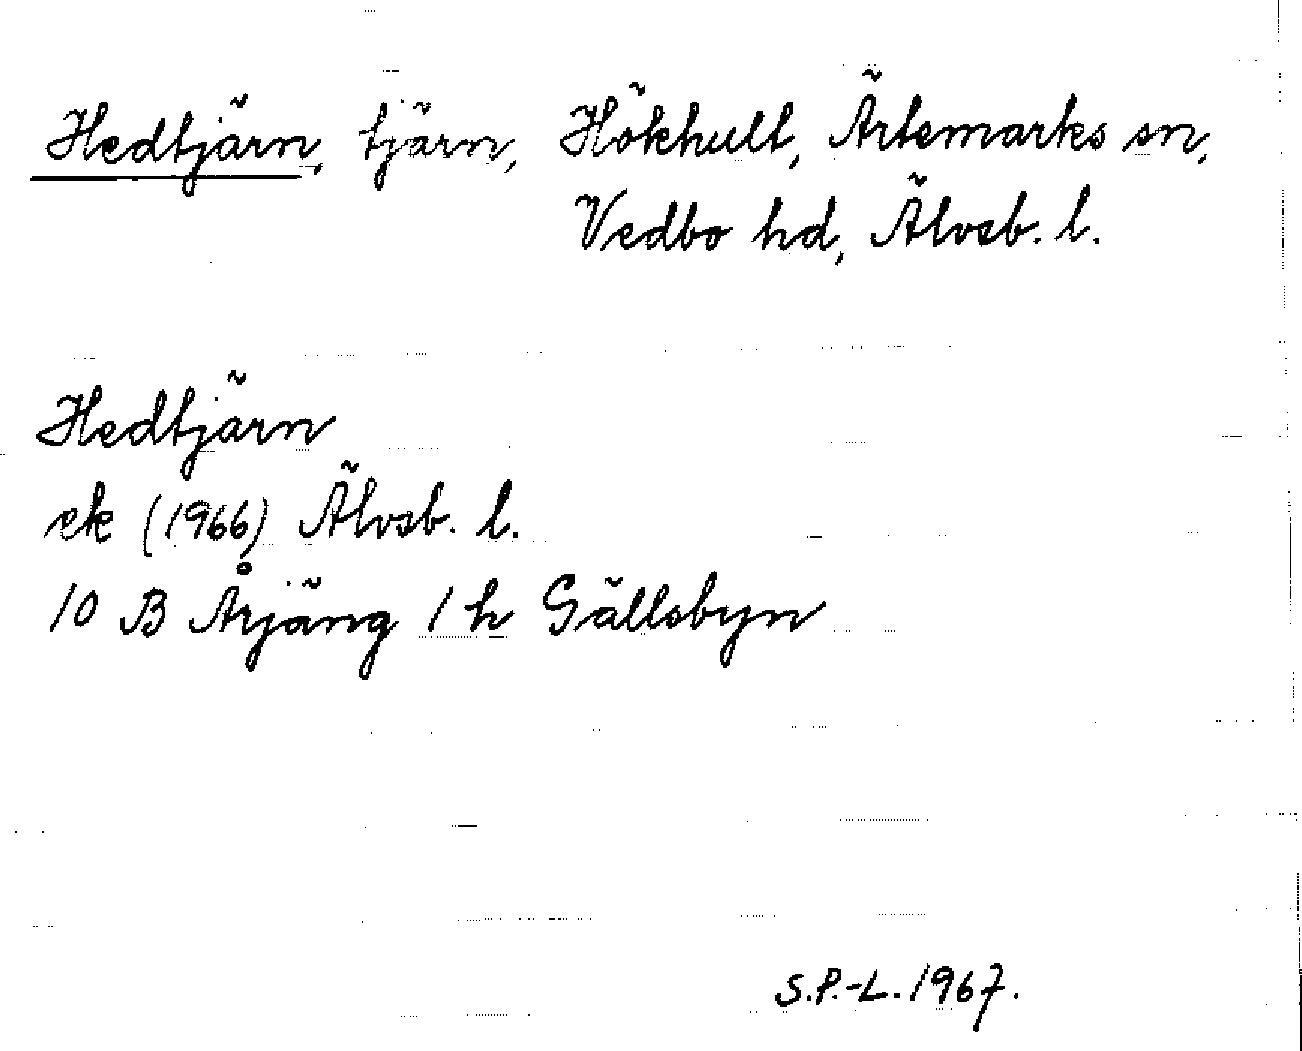 Hedtjärn, tjärn, Hökhult, Ärtemarks sn,
Vedbo hd, Älvsb. l.
Hedtjärn
ek (1966) Älvsb. l.
10 B Årjäng 1 h Gällsbyn
S.P.-L. 1967.